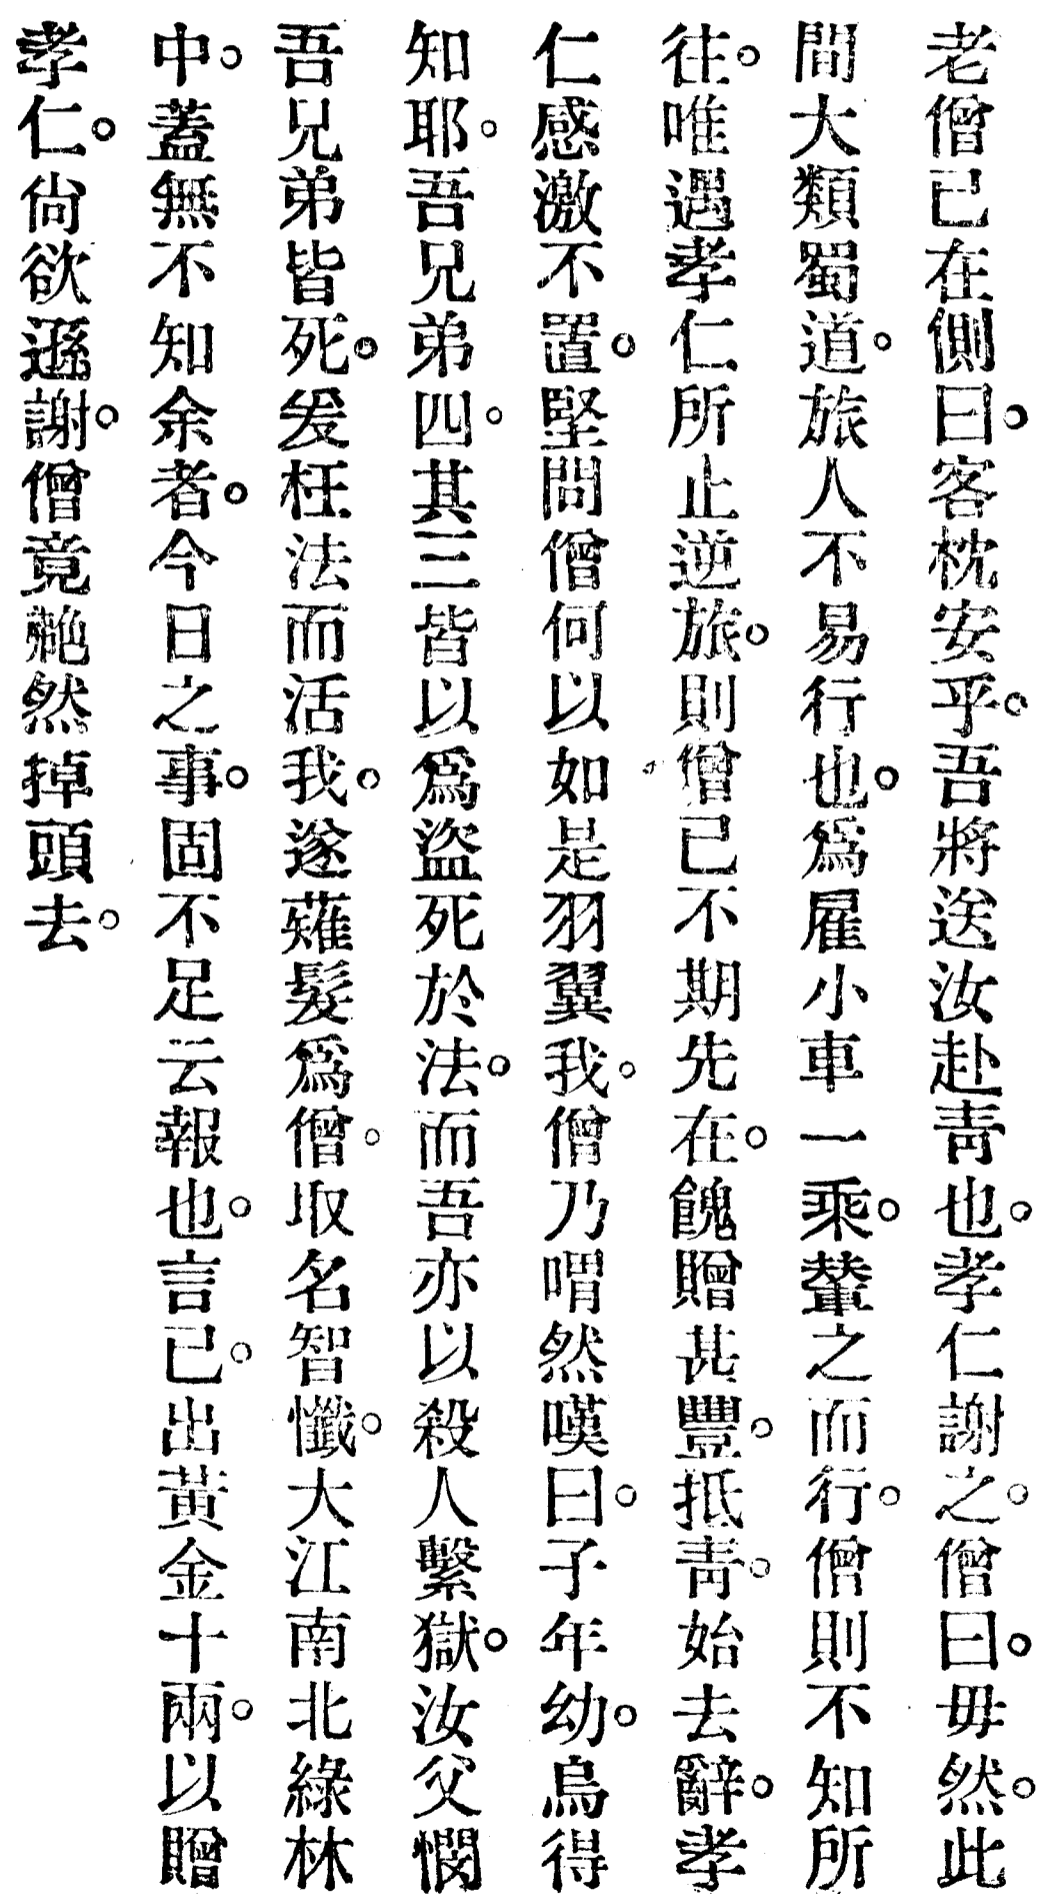 老僧已在側曰。客枕安乎。吾將送汝赴靑也。孝仁謝之。僧曰。毋然。此
間大類蜀道。旅人不易行也。爲雇小車一乘。輦之而行。僧則不知所
往。唯遇孝仁所止逆旅。則僧已不期先在。餽贈甚豐。抵靑。始去。辭。孝
仁感激不置。堅問僧何以如是羽翼我。僧乃喟然嘆曰。子年幼。烏得
知耶。吾兄弟四。其三皆以爲盜死於法。而吾亦以殺人繫獄。汝父憫
吾兄弟皆死。爰枉法而活我。遂薙髮爲僧。取名智懺。大江南北綠林
中。蓋無不知余者。今日之事。固不足云報也。言已。出黃金十兩。以贈
孝仁。尙欲遜謝。僧竟艴然掉頭去。